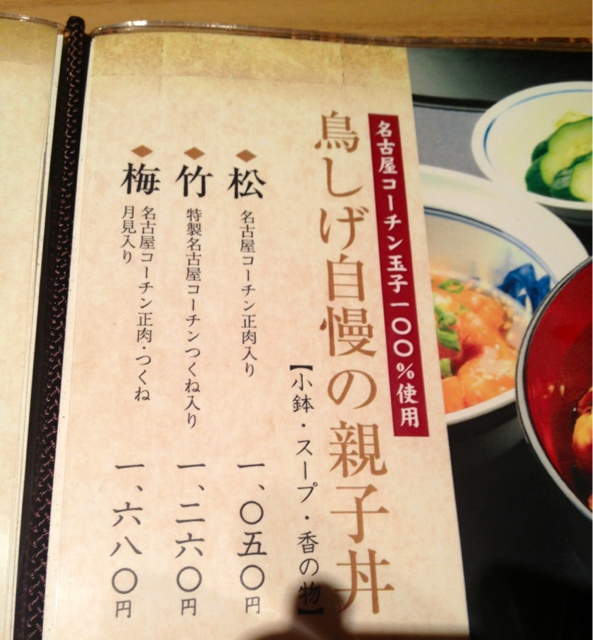 名古屋コーチン玉子一〇〇%使用
鳥しげ自慢の親子丼
【小鉢・スープ・香の物】
松
名古屋コーチン正肉入り
一、〇五〇円
竹
特製名古屋コーチンつくね入り
一、二六〇円
梅
名古屋コーチン正肉・つくね
月見入り
一、六八〇円